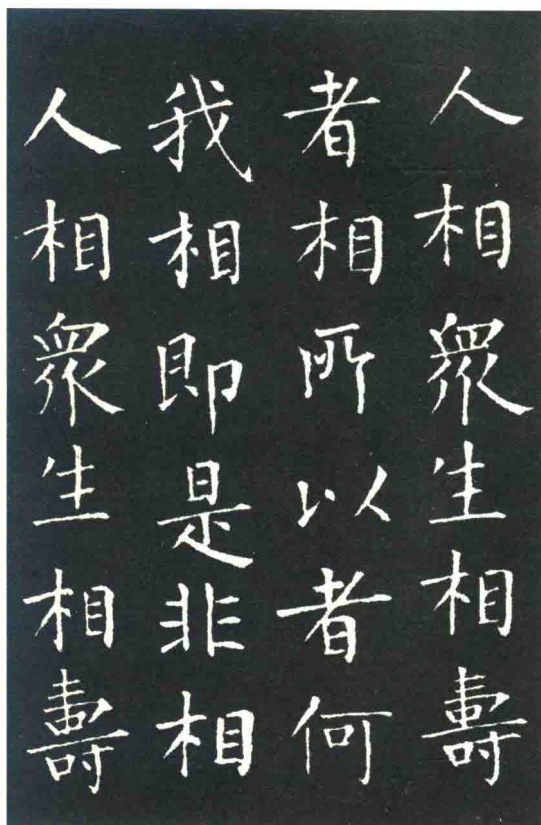 人相衆生相壽
者相所以者何
我相即是非相
人相衆生相壽